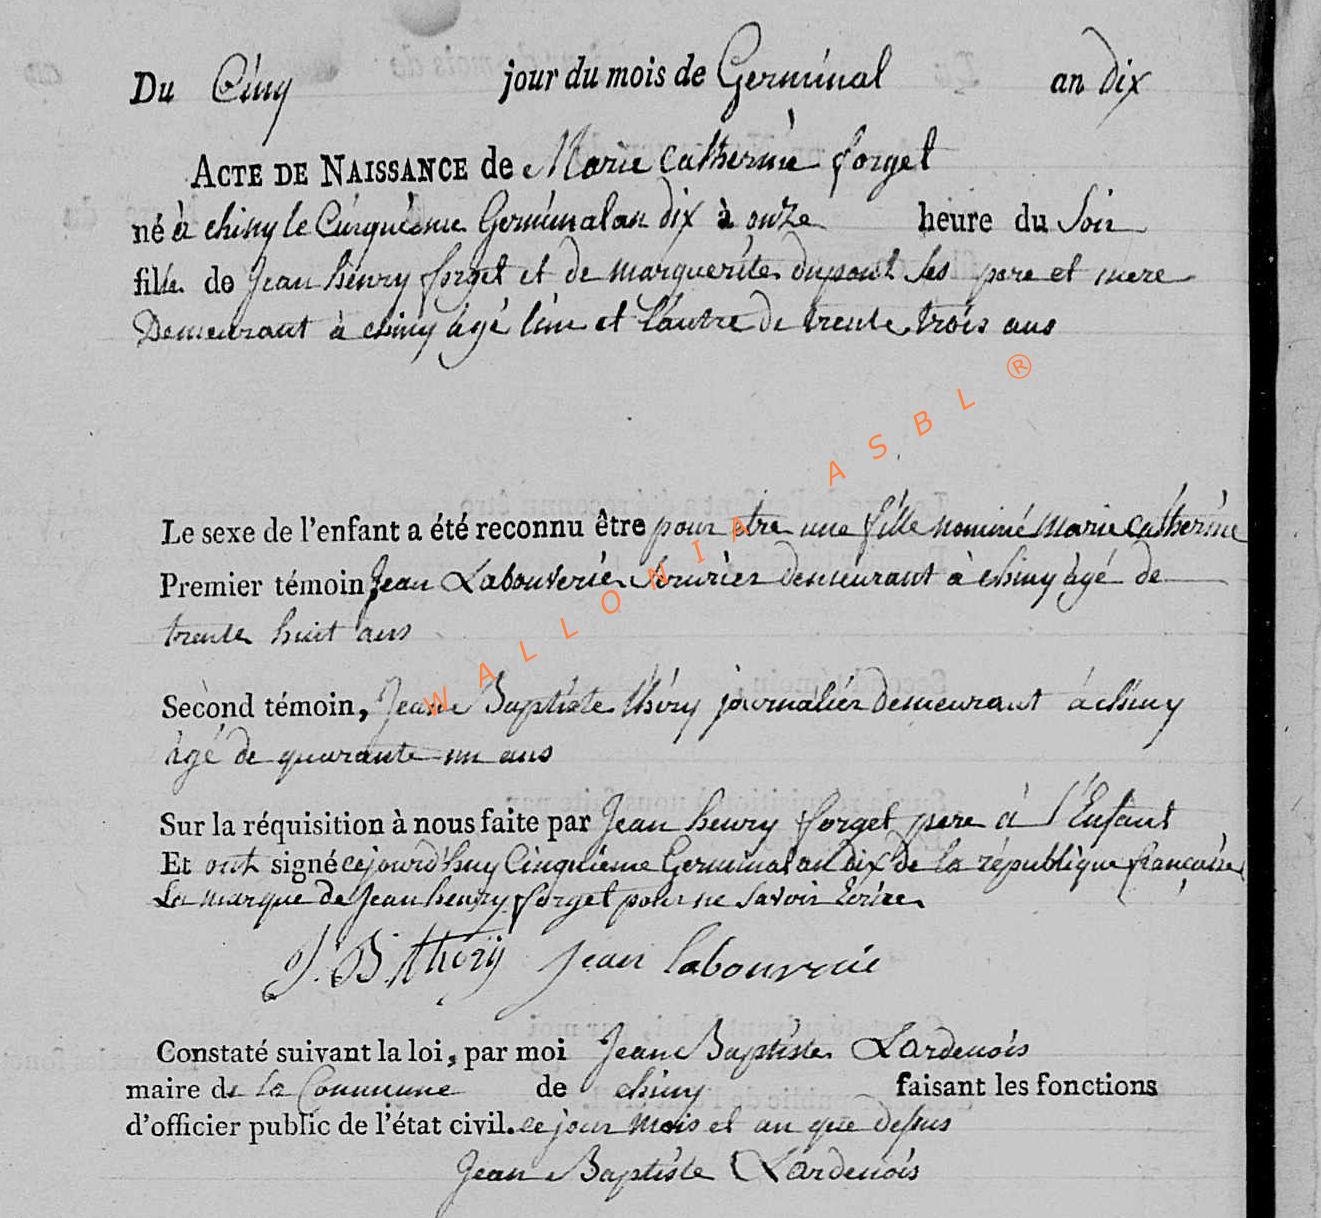 Du Cinq jour du mois de Germinal an dix
ACTE DE NAISSANCE de Marie Catherine forget
né à chiny le Cinquiéme Germinal an dix à onze heure du Soir
fille de Jean henry forget et de marguerite dupont ses pere et mere
Demeurant à chiny âgé l'une et l'autre de trente trois ans
Le sexe de l'enfant a été reconnu être pour etre une fille nommé marie catherine
Premier témoin, Jean Labouverie demeurant à chiny âgé de
trente huit ans
Second témoin, Jean Baptiste théry journalier demeurant à chiny
âgé de quarante un ans
Sur la réquisition à nous faite par Jean henry forget pere à l'Enfant
Et ont signé cejourd'huy Cinquieme Germinal an dix de la république française
La marque de Jean henry forget pour ne savoir Ecrire
J. B. théry Jean labouverie
Constaté suivant la loi, par moi Jean Baptiste Lardenois
maire de la Commune de chiny faisant les fonctions
d'officier public de l'état civil. ce jour mois et an que dessus
Jean Baptiste Lardenois
WALLONIA ASBL ®